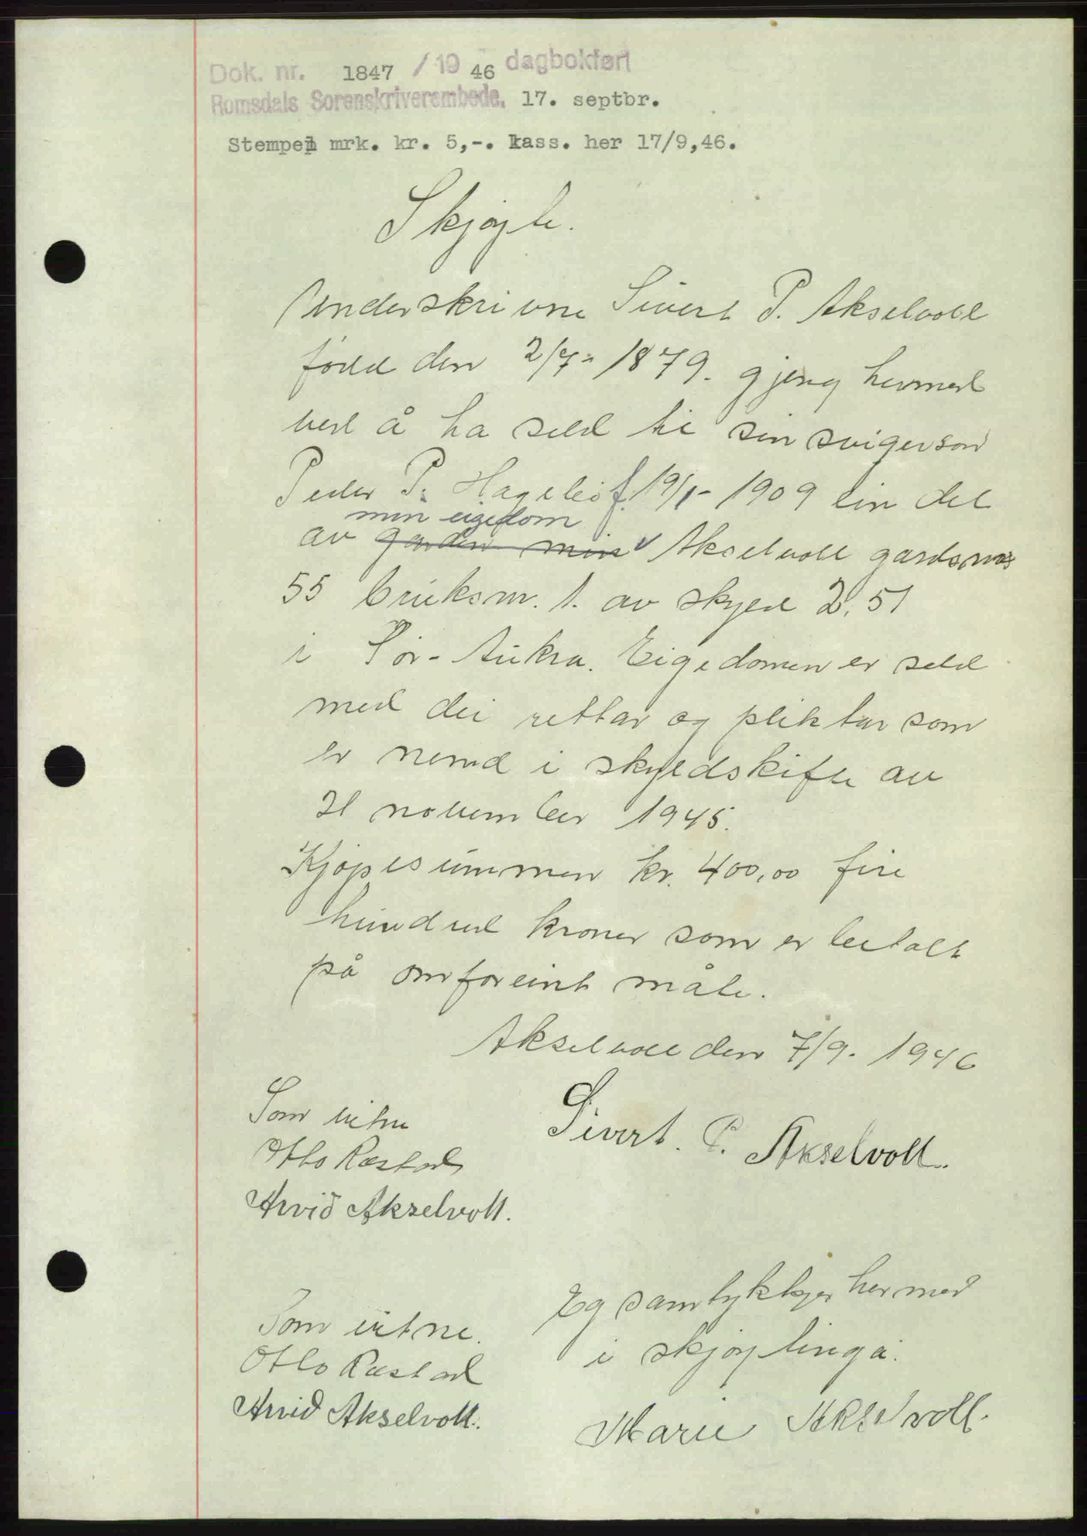 Dok. nr. 1847 / 19 46 dagbokført
Romsdals Sorenskriverembede, 17. septbr.
Stempel mrk. kr. 5,-. kass. her 17/9,46.
Skjøjte.
Underskrivne Sivert P. Akselvoll
fødd den 2/7- 1879. gjeng hermed
ved å ha seld til sin svigerson
Peder P. Hagelei f. 19/1- 1909 ein del
min eigedom
av garden min Akselvoll gardsnr
55 bruksnr. 1. av skyld 2,51
i Sør-Aukra. Eigedomen er seld
med dei rettar og pliktar som
er nemd i skyldskifte av
21 november 1945.
Kjøpesummen kr. 400,00 fire
hundred kroner som er betalt
på omforeint måte.
Akselvoll den 7/9- 1946
Som vitne
Otto Rastad
Arvid Akselvoll.
Sivert. P. Akselvoll.
Eg samtykkjer hermed
i skjøytinga.
Marie Akselvoll.
Som vitne.
Otto Rastad
Arvid Akselvoll.